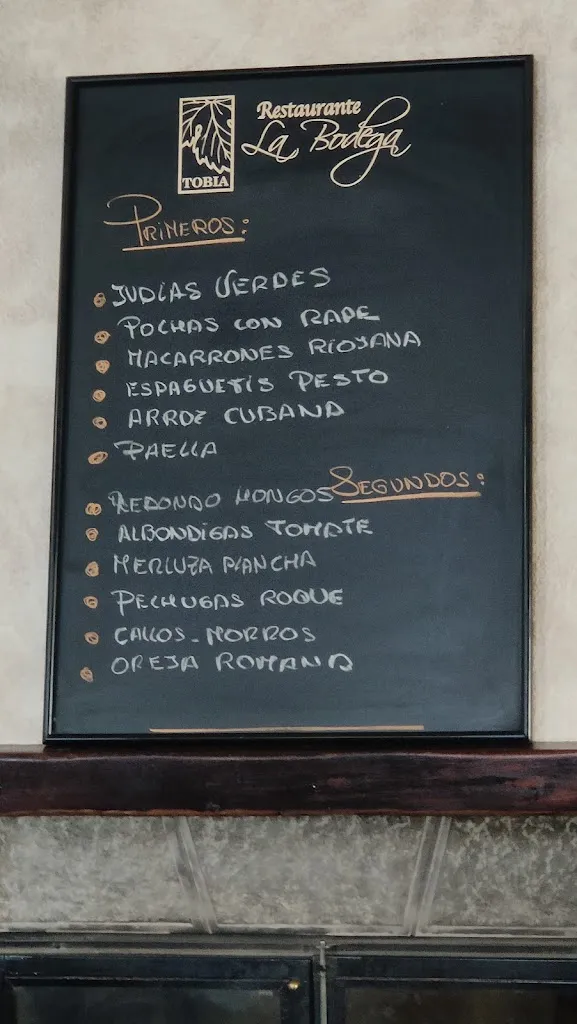 TOBIA
Restaurante
La Bodega
PRIMEROS:
JUDIAS VERDES
POCHAS CON RAPE
MACARRONES RIOJANA
ESPAGUETIS PESTO
ARROZ CUBANA
PAELLA
SEGUNDOS:
REDONDO HONGOS
ALBONDIGAS TOMATE
MERLUZA PLANCHA
PECHUGAS ROQUE
CALLOS-MORROS
OREJA ROMANA